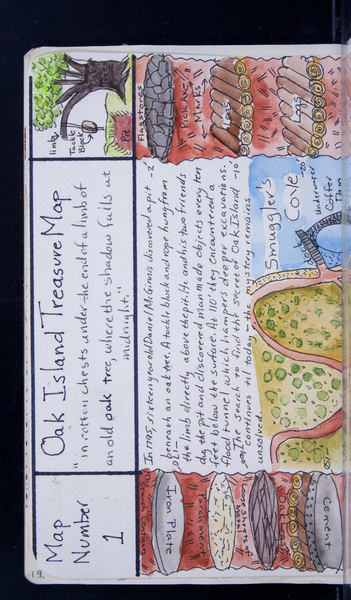 Map
Number
1
Oak Island Treasure Map
"in rotten chests under the end of a limb of
an old oak tree, where the shadow falls at
midnight."
limb
Tackle
Block
Pit
In 1795, sixteen year old Daniel McGinnis discovered a pit
beneath an oak tree. A tackle block and rope hung from
the limb directly above the pit. He and his two friends
dug the pit and discovered man made objects every ten
feet below the surface. At 110' they encountered a
flood tunnel which hampers deeper excavations.
The search to find the secret of Oak Island
continues til today - the mystery remains
unsolved.
Flagstones
-2'
Pick Axe
Marks
Logs
-10'
Logs
-20'
Smuggler's
Cove
Underwater
Coffer
Dam
Iron Plate
Parchment
Cement
19.